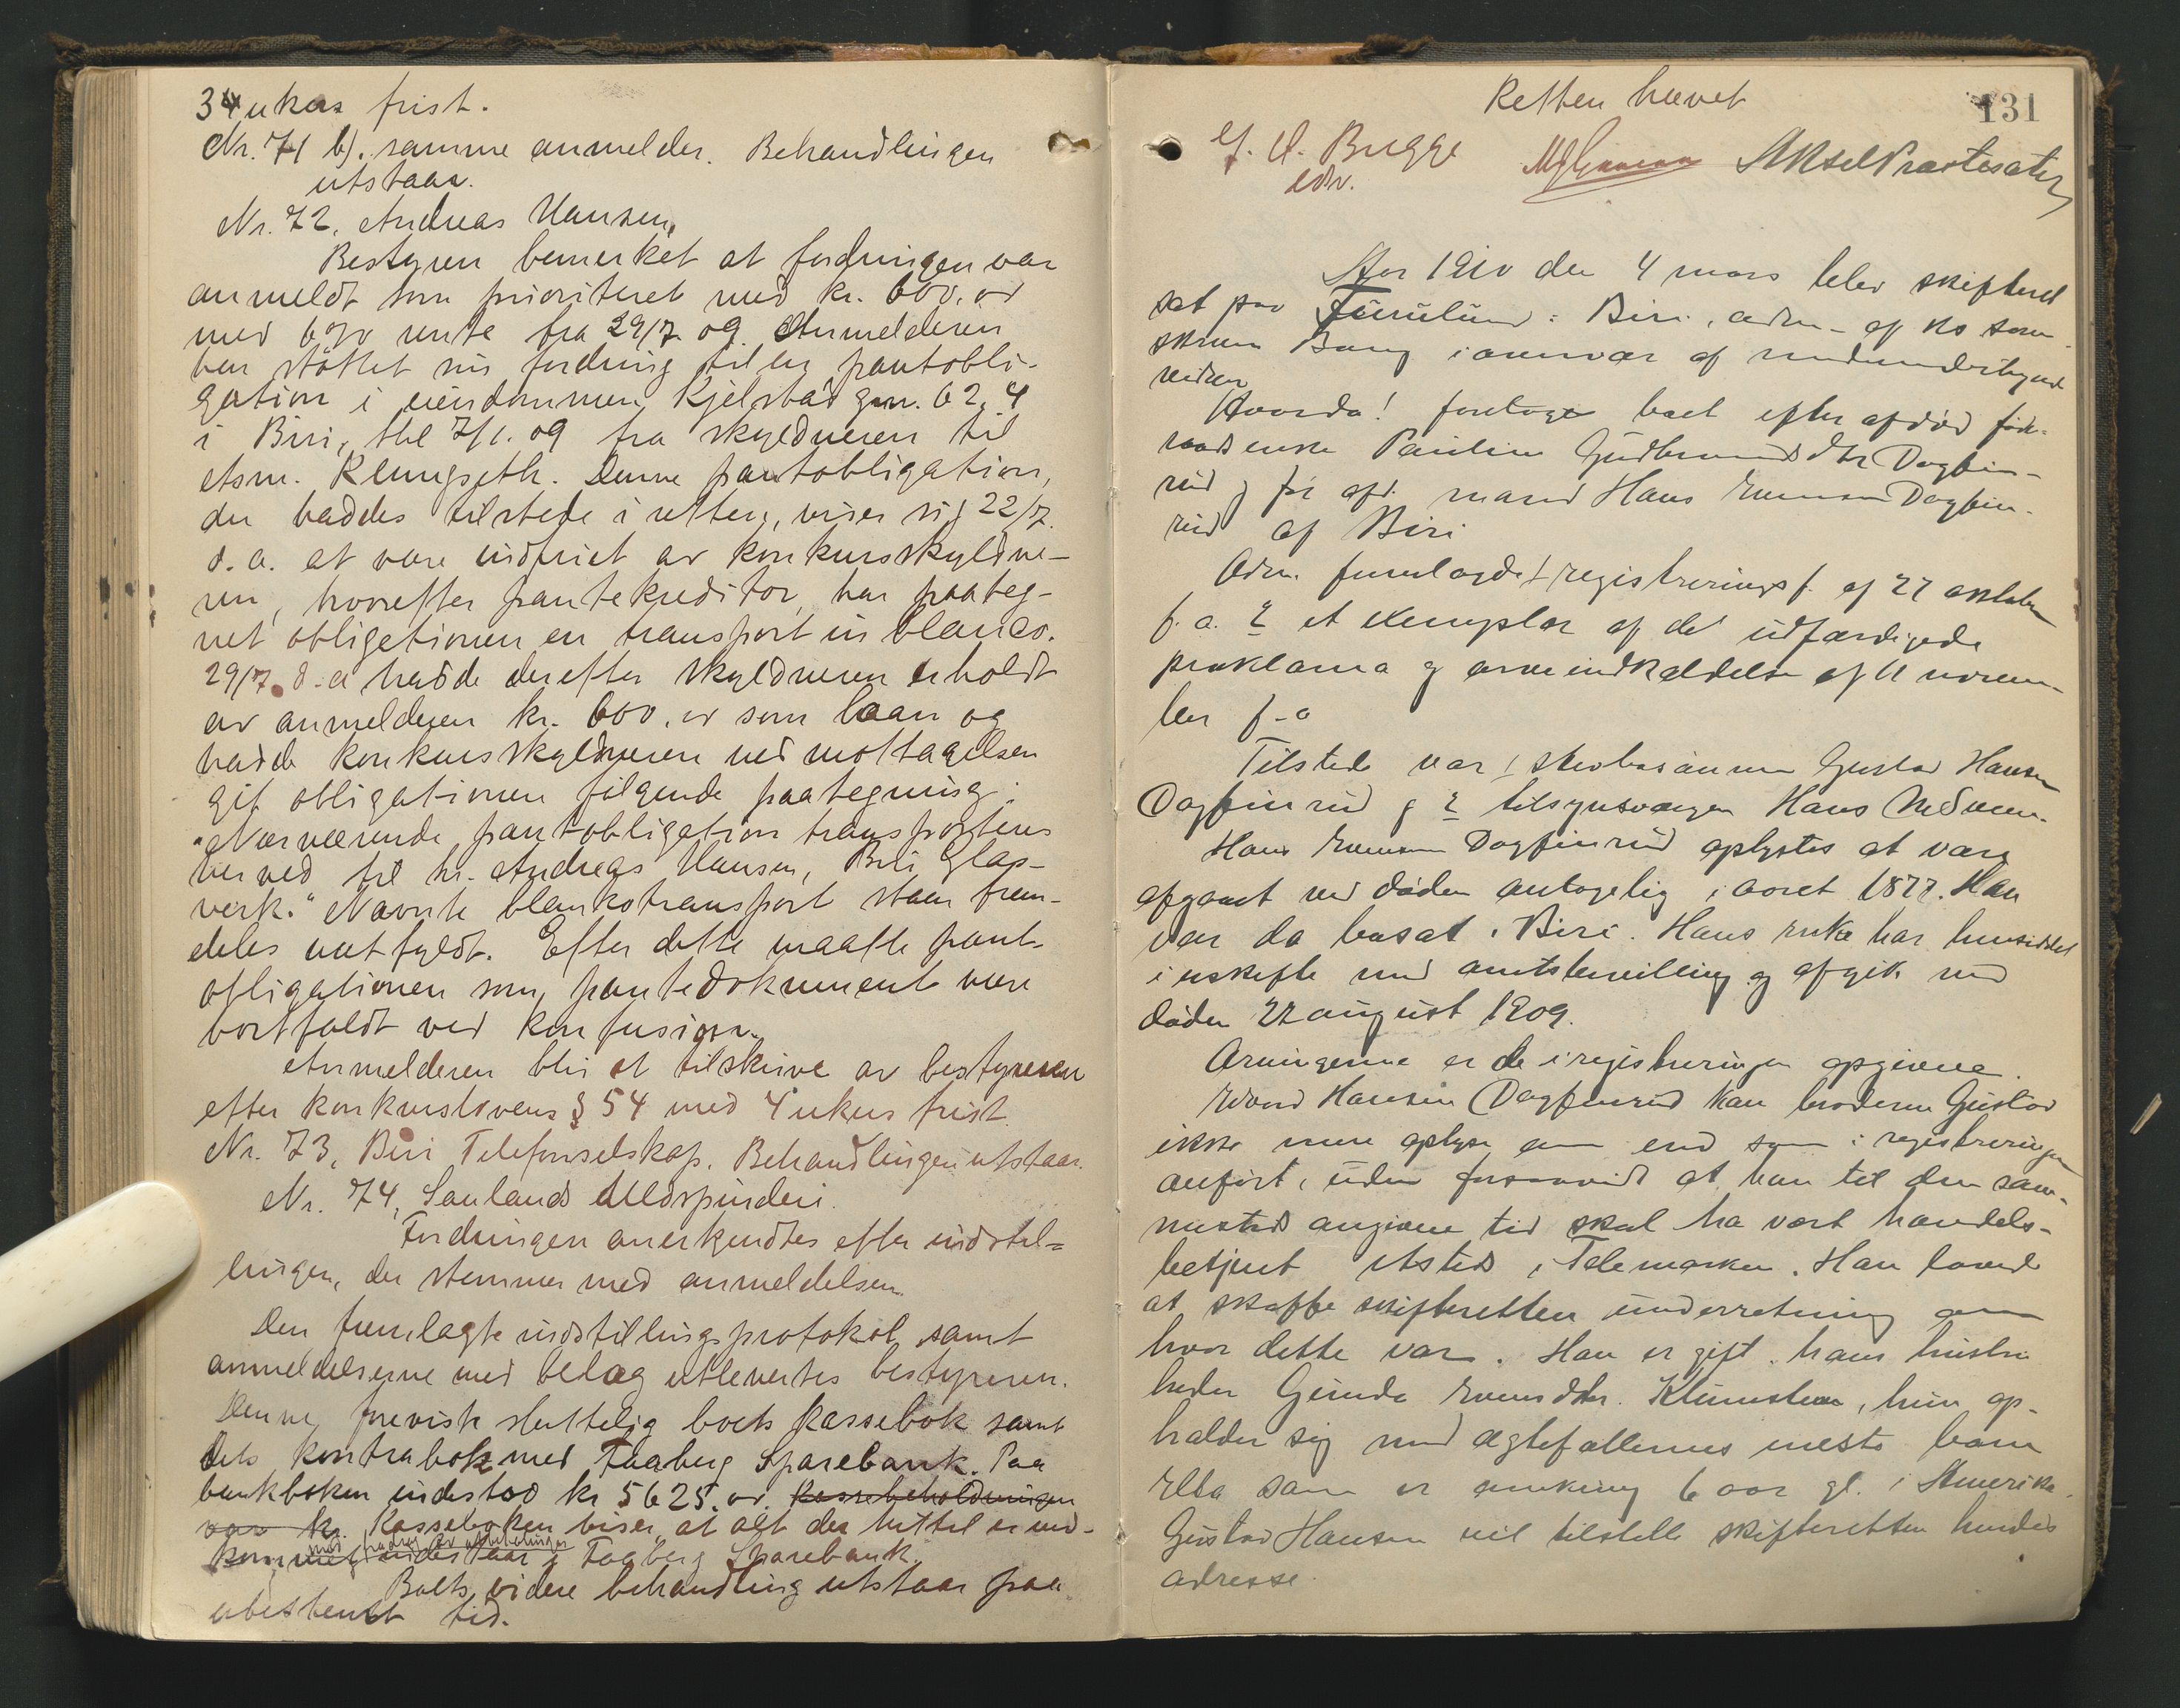 34 ukers frist.
Nr. 71 b). samme anmelder. Behandlingen
utstaar.
Nr. 72, Andreas Hansen,
Bestyren bemerket at fordringen var
anmeldt som prioriteret med kr. 600,00
med 6% rente fra 29/7 09. Anmelderen
har støttet sin fordring til en pantobli-
gation i eiendommen Kjelstad gnr. 62, 4
i Biri, tbl 7/1. 09 fra skyldneren til
etsm. Klungseth. Denne pantobligation,
der haddes tilstede i retten, viser sig 22/7.
s.a. at være indfriet av konkursskyldne-
ren, hvorefter pantekreditor har paateg-
net obligationen en transport in blanco.
29/7. s.a hadde derefter skyldneren erholdt
av anmelderen kr. 600,00 som laan og
hadde konkursskyldneren ved mottagelsen
git obligationen følgende paategning:
"Nærværende pantobligation transporteres
herved til hr. Andreas Hansen, Biri Glas-
verk." Nævnte blankotransport staar frem-
deles uutfyldt. Efter dette maatte pant-
obligationen som pantedokument være
bortfaldt ved konfusion.
Anmelderen blir at tilskrive av bestyreren
efter konkurslovens § 54 med 4 ukers frist.
Nr. 73, Biri Telefonselskap. Behandlingen utstaar.
Nr. 74, Saulands Uldspinderi.
Fordringen anerkjendtes efter indstil=
lingen, der stemmer med anmeldelsen.
Den fremlagte indstillingsprotokol samt
anmeldelserne med belæg utlevertes bestyreren.
Denne foreviste sluttelig boets kassebok samt
dets kontrabok med Faaberg Sparebank. Paa
bankboken indestod kr 5625,00. Kassebeholdningen
var kr. Kasseboken viser, at alt der hittil er ind-
med fradrag av utbetalinger
kommet indestaar i Faaberg Sparebank.
Boets videre behandling utstaar paa
ubestemt tid.
Retten hævet
131
G. A. Bugge
edv.
Aksel Præstesæter
Aar 1910 den 4 mars blev skifteret
sat paa Furulund i Biri, adm- af ks soren-
skriver Bang i overvær af nedenunderskrevne
vidner
Hvorda! foretoges boet efter afdød føde-
raadsenke Pauline Gudbrandsdtr Dagfin-
rud og før afd. mand Hans Evensen Dagfin-
rud af Biri
Adm. fremlagde 1 registreringsf. af 27 oktober
f.a. 2 et exemplar af det udfærdigede
proklama og arveindkaldelse af 11 novem-
ber f-a
Tilstede var 1 sterbosønnen Gustav Hansen
Dagfinrud og 2 tilsynsværgen Hans
Hans Evensen Dagfinrud oplystes at være
afgaaet ved døden antagelig i aaret 1877. Han
var da bosat i Biri. Hans enke har hensiddet
i uskifte med amtsbevilling og afgik ved
døden 22 august 1909.
Arvingerne er de i registreringen opgivne.
Edvard Hansen Dagfinrud kan broderen Gustav
ikke mere oplyse om end som i registreringen
anført, uden forsaavidt at han til den sam-
mesteds angivne tid skal ha vært handels-
betjent etsteds i Telemarken. Han lovede
at skaffe skifteretten underretning om
hvor dette var. Han er gift. hans hustru
heder Gunda Evensdtr. Klunsteen, hun op-
holder sig med ægtefællernes eneste barn
Ella som er omkring 6 aar gl. i Amerika.
Gustav Hansen vil tilstille skifteretten hendes
adresse.